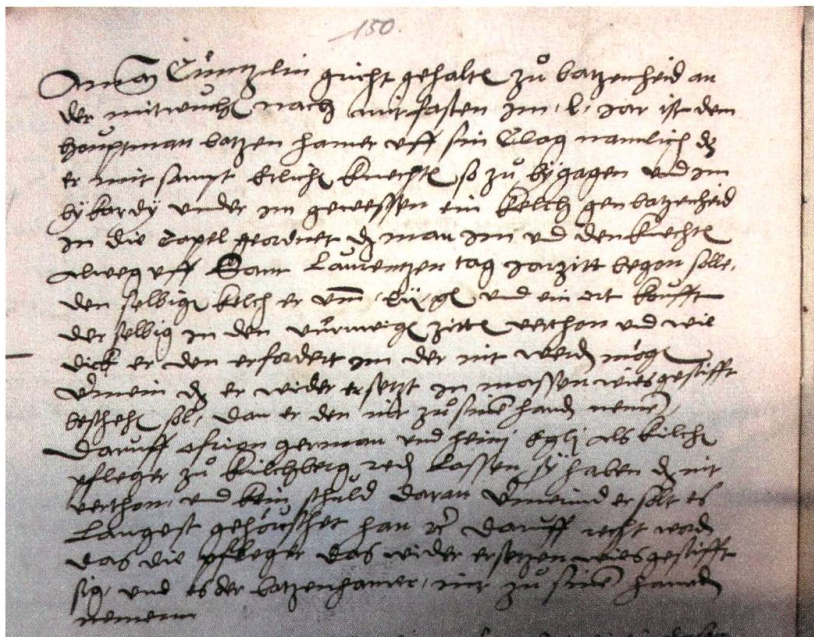 150.
Aman Cůntzlin gricht gehalten zů batzenheid an
der mitwuchen nach mitfasten im . l . Jar ist dem
houptman batzenhamer uff sin Clag namlich dz
er mit sampt etlichen knechten so zů bygagen und im
bykardy under im gewessen ein kelch gen batzenheid
in die Capel geordnet dz man im und den knechten
alweg uff Sant Laurentzen tag Jarzitt began solle,
den selbigen kelch er um gl und ein ort koufft
der selbig in den zitten verthon und wie
dick er den erfordert im der nit werden mögen
vermein dz er wider ersetzt in massen wies gestifft
beschehen sol, dan er den nit zů sinen handen nemen,
Daruff german und heinj Eglj als kilchen
pfleger zů kilchberg reden Lassen, sy haben dz nit
verthon, und kein schuld daran vermeind er solt es
Langest han daruff recht worden
das die pfleger das wider ersetzen wies gestifft
sig, und es der batzenhamer, nit zů sinen handen
nemenn